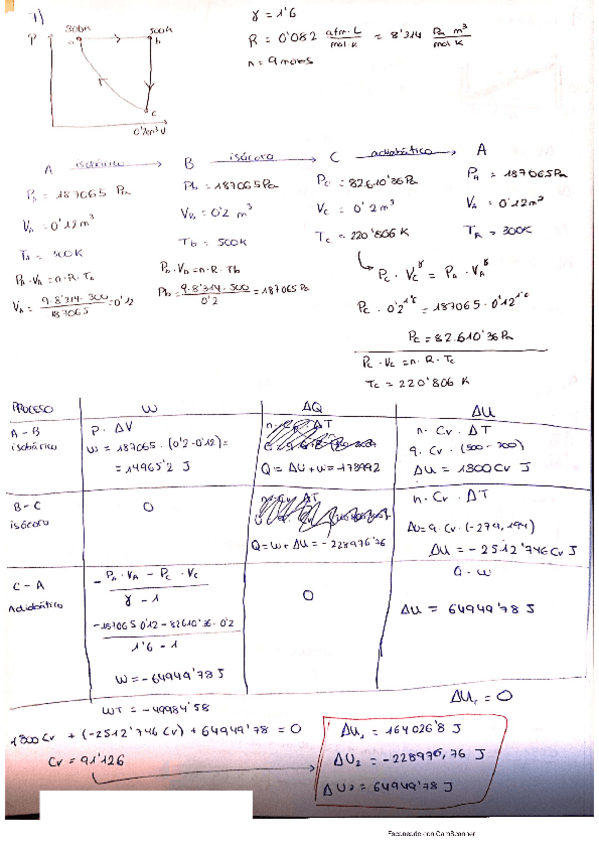 7)
P
300k
500k
a
b
c
0'2m³ V
γ = 1'6
R = 0'082 atm·L / mol·K = 8'314 Pa m³ / mol K
n = 9 moles
A isobárico → B isócoro → C adiabático → A
PA = 187065 Pa
VA = 0'12 m³
TA = 300K
PA · VA = n · R · TA
VA = 9·8'314·300 / 187065 = 0'12
Pb = 187065 Pa
VB = 0'2 m³
Tb = 500K
Pb · VB = n · R · Tb
Pb = 9·8'314·500 / 0'2 = 187065 Pa
PC = 82.610'36 Pa
VC = 0'2 m³
TC = 220'806 K
PC · VC^γ = PA · VA^γ
PC · 0'2^1'6 = 187065 · 0'12^1'6
PC = 82.610'36 Pa
PC · VC = n · R · TC
TC = 220'806 K
PA = 187065 Pa
VA = 0'12 m³
TA = 300K
PROCESO W ΔQ ΔU
A - B
isobárico
P · ΔV
W = 187065 · (0'2-0'12) =
= 14965'2 J
Q = ΔU + W = 178992
n · Cv · ΔT
9 · Cv · (500 - 300)
ΔU = 1800 Cv J
B - C
isócoro
0
Q = W + ΔU = - 228976'76
n · Cv · ΔT
ΔU = 9 · Cv · (-279,194)
ΔU = - 2512'746 Cv J
C - A
Adiabático
- PA · VA - PC · VC / γ - 1
-187065·0'12 - 82610'36·0'2 / 1'6 - 1
W = - 64949'78 J
0
Q - W
ΔU = 64949'78 J
WT = - 49984'58
ΔUT = 0
1800 Cv + (-2512'746 Cv) + 64949'78 = 0
Cv = 91'126
ΔU1 = 164026'8 J
ΔU2 = - 228976,76 J
ΔU3 = 64949'78 J
Escaneado con CamScanner